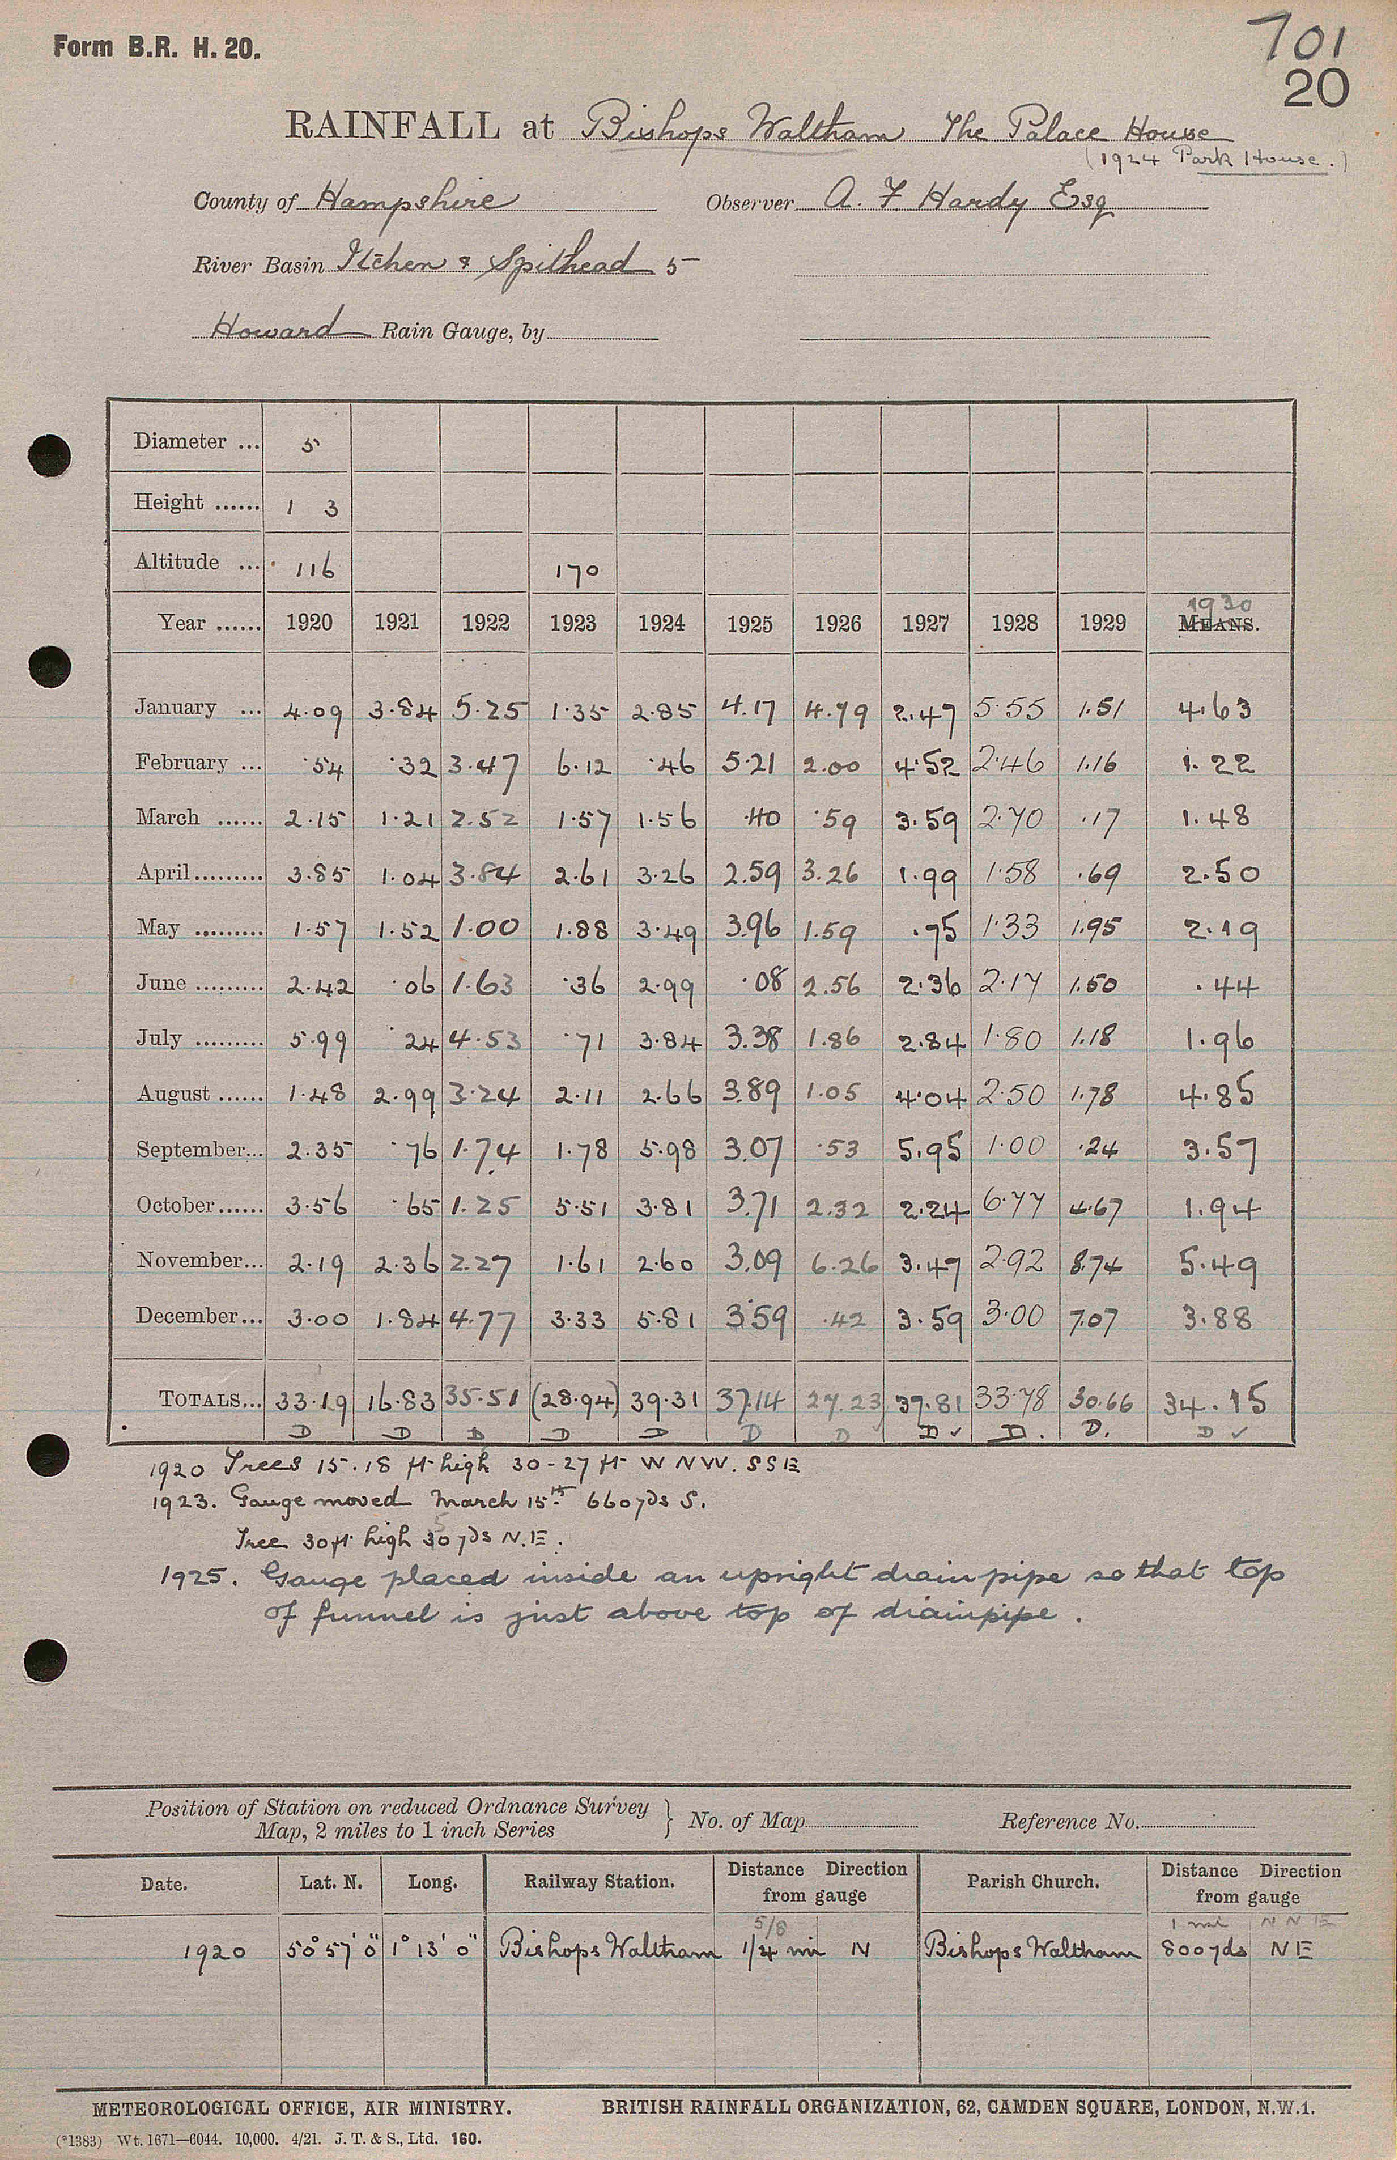 Form B.R. H. 20.
701
20
RAINFALL at Bishops Waltham The Palace House
(1924 Park House.)
County of Hampshire Observer A. F. Hardy Esq
River Basin Itchen & Spithead 5
Howard Rain Gauge, by
Diameter ... 5
Height ...... 1 3
Altitude ... 116 170
Year ...... 1920 1921 1922 1923 1924 1925 1926 1927 1928 1929 1930 MEANS.
January ... 4.09 3.84 5.25 1.35 2.85 4.17 4.79 2.47 5.55 1.51 4.63
February ... .54 .32 3.47 6.12 .46 5.21 2.00 4.52 2.46 1.16 1.22
March ...... 2.15 1.21 2.52 1.57 1.56 .40 .59 3.59 2.70 .17 1.48
April......... 3.85 1.04 3.84 2.61 3.26 2.59 3.26 1.99 1.58 .69 2.50
May ......... 1.57 1.52 1.00 1.88 3.49 3.96 1.59 .75 1.33 1.95 2.19
June ......... 2.42 .06 1.63 .36 2.99 .08 2.56 2.36 2.17 1.50 .44
July ......... 5.99 .24 4.53 .71 3.84 3.38 1.86 2.84 1.80 1.18 1.96
August ...... 1.48 2.99 3.24 2.11 2.66 3.89 1.05 4.04 2.50 1.78 4.85
September... 2.35 .76 1.74 1.78 5.98 3.07 .53 5.95 1.00 .24 3.57
October...... 3.56 .65 1.25 5.51 3.81 3.71 2.32 2.24 6.77 4.67 1.94
November... 2.19 2.36 2.27 1.61 2.60 3.09 6.26 3.47 2.92 8.74 5.49
December... 3.00 1.84 4.77 3.33 5.81 3.59 .42 3.59 3.00 7.07 3.88
TOTALS... 33.19 16.83 35.51 (28.94) 39.31 37.14 27.23 37.81 33.78 30.66 34.15
D D D D D D D D ✓ D. D. D ✓
1920 Trees 15.18 ft high 30-27 ft W NW. SSE
1923. Gauge moved March 15th 660 yds S.
Tree 30ft high 30 yds N.E.
1925. Gauge placed inside an upright drain pipe so that top
of funnel is just above top of drainpipe.
Position of Station on reduced Ordnance Survey
Map, 2 miles to 1 inch Series } No. of Map Reference No.
Date. Lat. N. Long. Railway Station. Distance Direction from gauge Parish Church. Distance Direction from gauge
5/8 1 mi NNE
1920 50° 57' 0" 1° 13' 0" Bishops Waltham 1/4 mi N Bishops Waltham 800 yds NE
METEOROLOGICAL OFFICE, AIR MINISTRY. BRITISH RAINFALL ORGANIZATION, 62, CAMDEN SQUARE, LONDON, N.W.1.
(*1383) Wt. 1671—6044. 10,000. 4/21. J. T. & S., Ltd. 160.